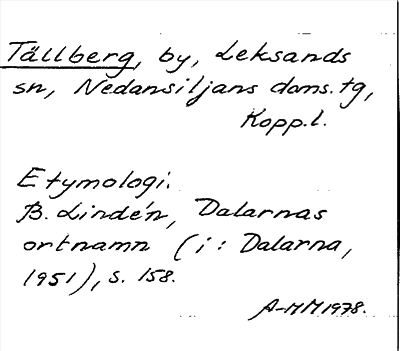 Tällberg, by, Leksands
sn, Nedansiljans doms. tg,
Kopp.l.
Etymologi:
B. Lindén, Dalarnas
ortnamn (i: Dalarna,
1951), s. 158.
A-MM 1978.